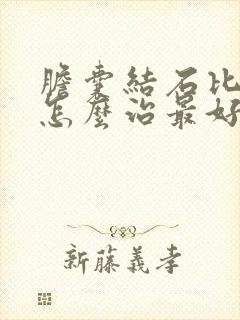 膽囊結石比
怎麼治最好
新藤義孝